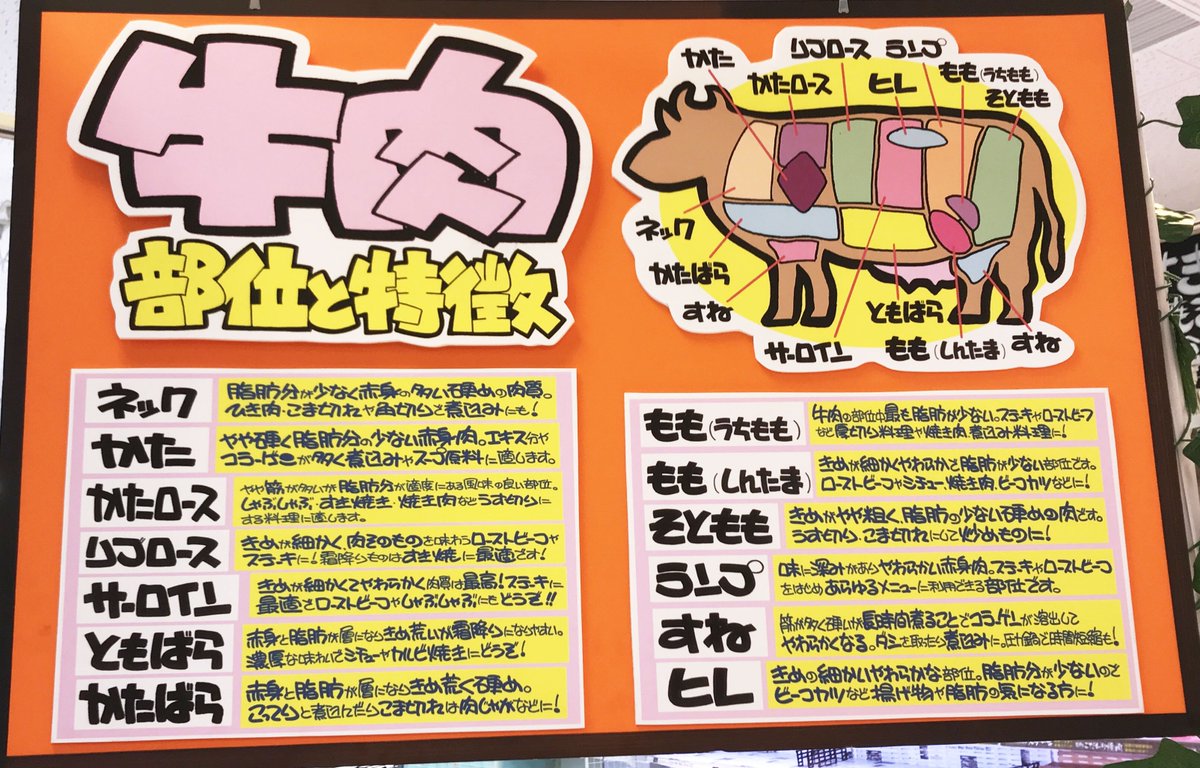 牛肉
部位と特徴
かた
リブロース
ランプ
かたロース
ヒレ
もも(うちもも)
そともも
ネック
かたばら
すね
サーロイン
ともばら
もも(しんたま)
すね
ネック
脂肪分が少なく赤身の多い硬めの肉質。
ひき肉・こま切れや角切りで煮込みにも!
かた
やや硬く脂肪分の少ない赤身肉。エキス分や
コラーゲンが多く煮込みやスープ原料に適します。
かたロース
やや筋が多いが脂肪分が適度にある風味の良い部位。
しゃぶしゃぶ・すき焼き・焼き肉などうす切りに
する料理に適します。
リブロース
きめが細かく肉そのものを味わうローストビーフや
ステーキに!霜降りものはすき焼に最適です!
サーロイン
きめが細かくてやわらかく肉質は最高!ステーキに
最適でローストビーフやしゃぶしゃぶにもどうぞ!!
ともばら
赤身と脂肪が層になりきめ荒いが霜降りになりやすい。
濃厚な味わいでシチューやカルビ焼きにどうぞ!
かたばら
赤身と脂肪が層になりきめ荒く硬め。
こってりと煮込んだりこま切れは肉じゃがなどに!
もも(うちもも)
牛肉の部位中最も脂肪が少ない。ステーキやローストビーフ
など厚切り料理や焼き肉、煮込み料理に!
もも(しんたま)
きめが細かくやわらかで脂肪が少ない部位です。
ローストビーフやシチュー・焼き肉、ビーフカツなどに!
そともも
きめがやや粗く、脂肪の少ない硬めの肉です。
うす切り、こま切れにして炒めものに!
ランプ
味に深みがありやわらかい赤身肉。ステーキやローストビーフ
をはじめあらゆるメニューに利用できる部位です。
すね
筋が多く硬いが長時間煮ることでコラーゲンが溶出して
やわらかくなる。ダシを取ったり煮込みに。圧力鍋で時間短縮も!
ヒレ
きめの細かいやわらかな部位。脂肪分が少ないので
ビーフカツなど揚げ物や脂肪の気になる方に!